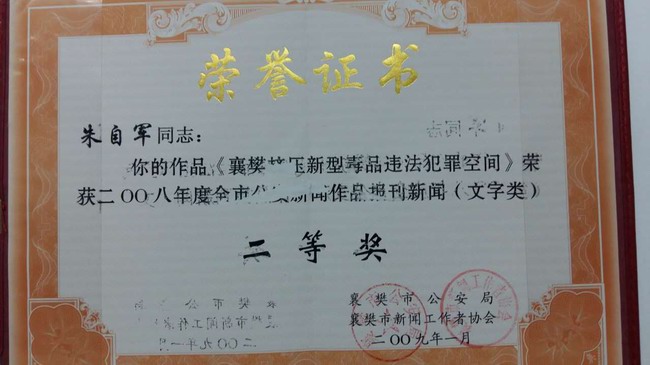 荣誉证书
朱自军同志：
你的作品《襄樊挤压新型毒品违法犯罪空间》荣
获二〇〇八年度全市公安新闻作品报刊新闻（文字类）
二等奖
襄樊市公安局
襄樊市新闻工作者协会
二〇〇九年一月